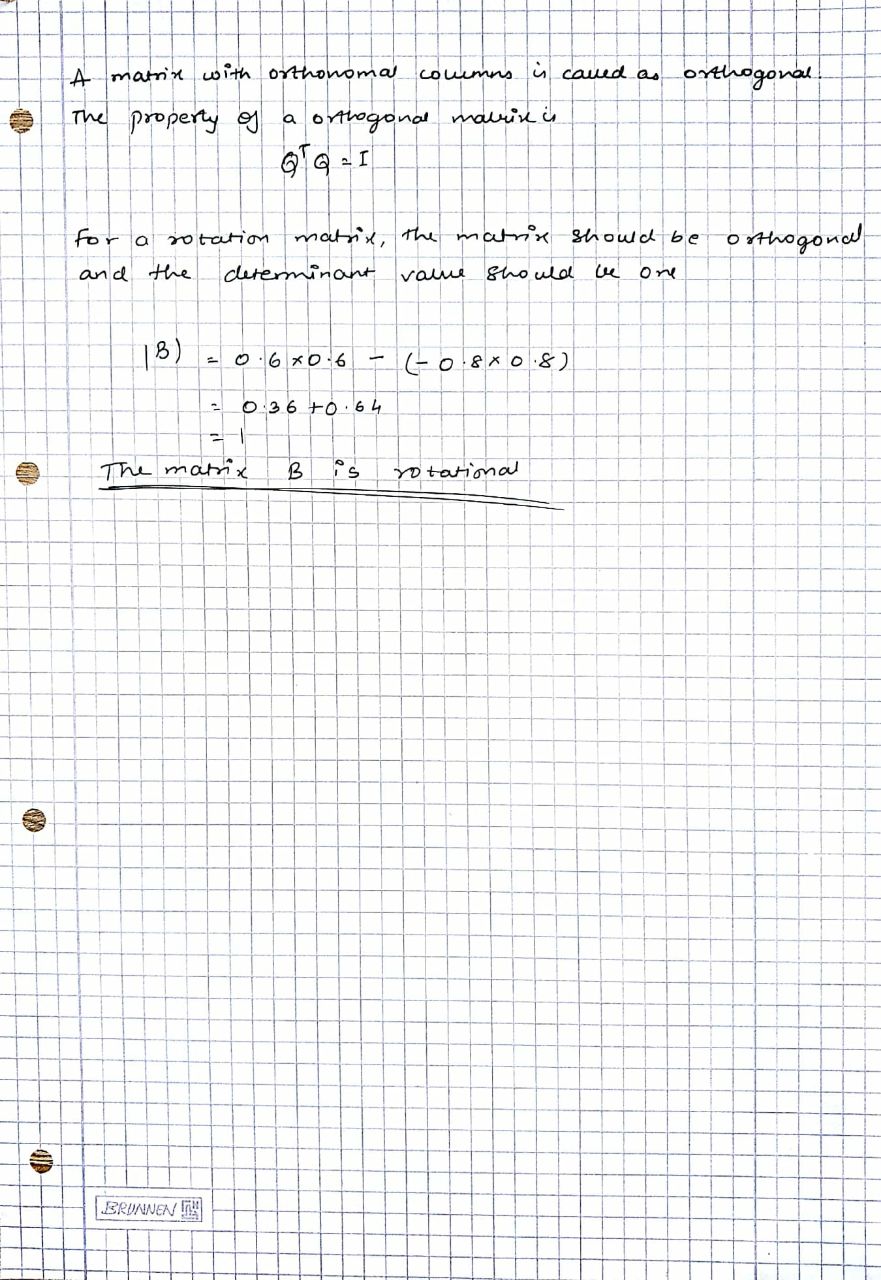 A matrix with orthonomal columns is called as orthogonal.
The property of a orthogonal matrix is
Q^T Q = I
For a rotation matrix, the matrix should be orthogonal
and the determinant value should be one
|B) = 0.6 x 0.6 - (-0.8 x 0.8)
= 0.36 + 0.64
= 1
The matrix B is rotational
BRUNNEN